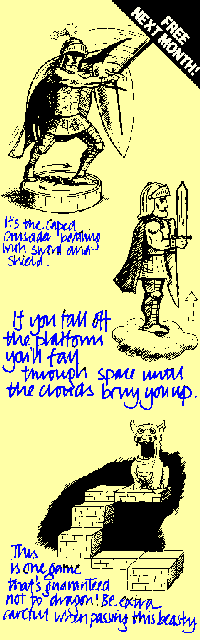 FREE
NEXT MONTH!
It's the caped
crusader battling
with sword and
shield.
If you fall off
the platform
you'll fall
through space until
the clouds bring you up.
This
is one game
that's guaranteed
not to dragon! Be extra
careful when passing this beasty